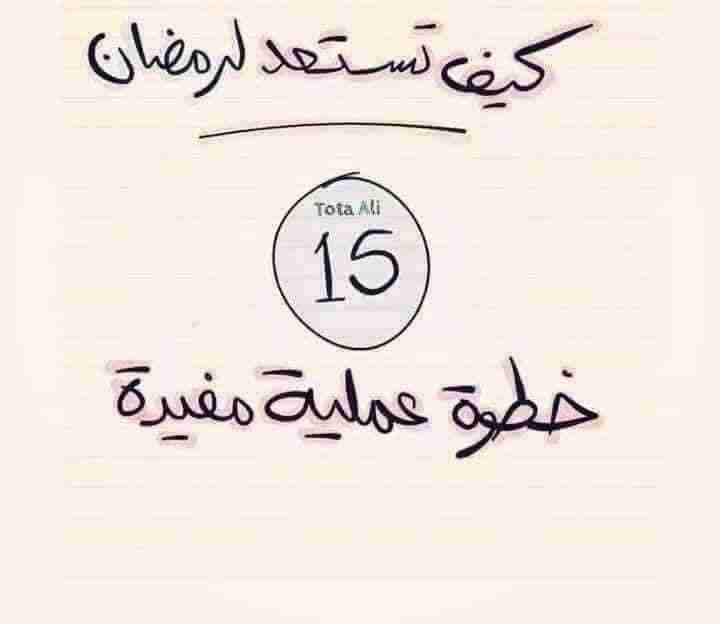 كيف تستعد لرمضان
Tota Ali
15
خطوة عملية مفيدة